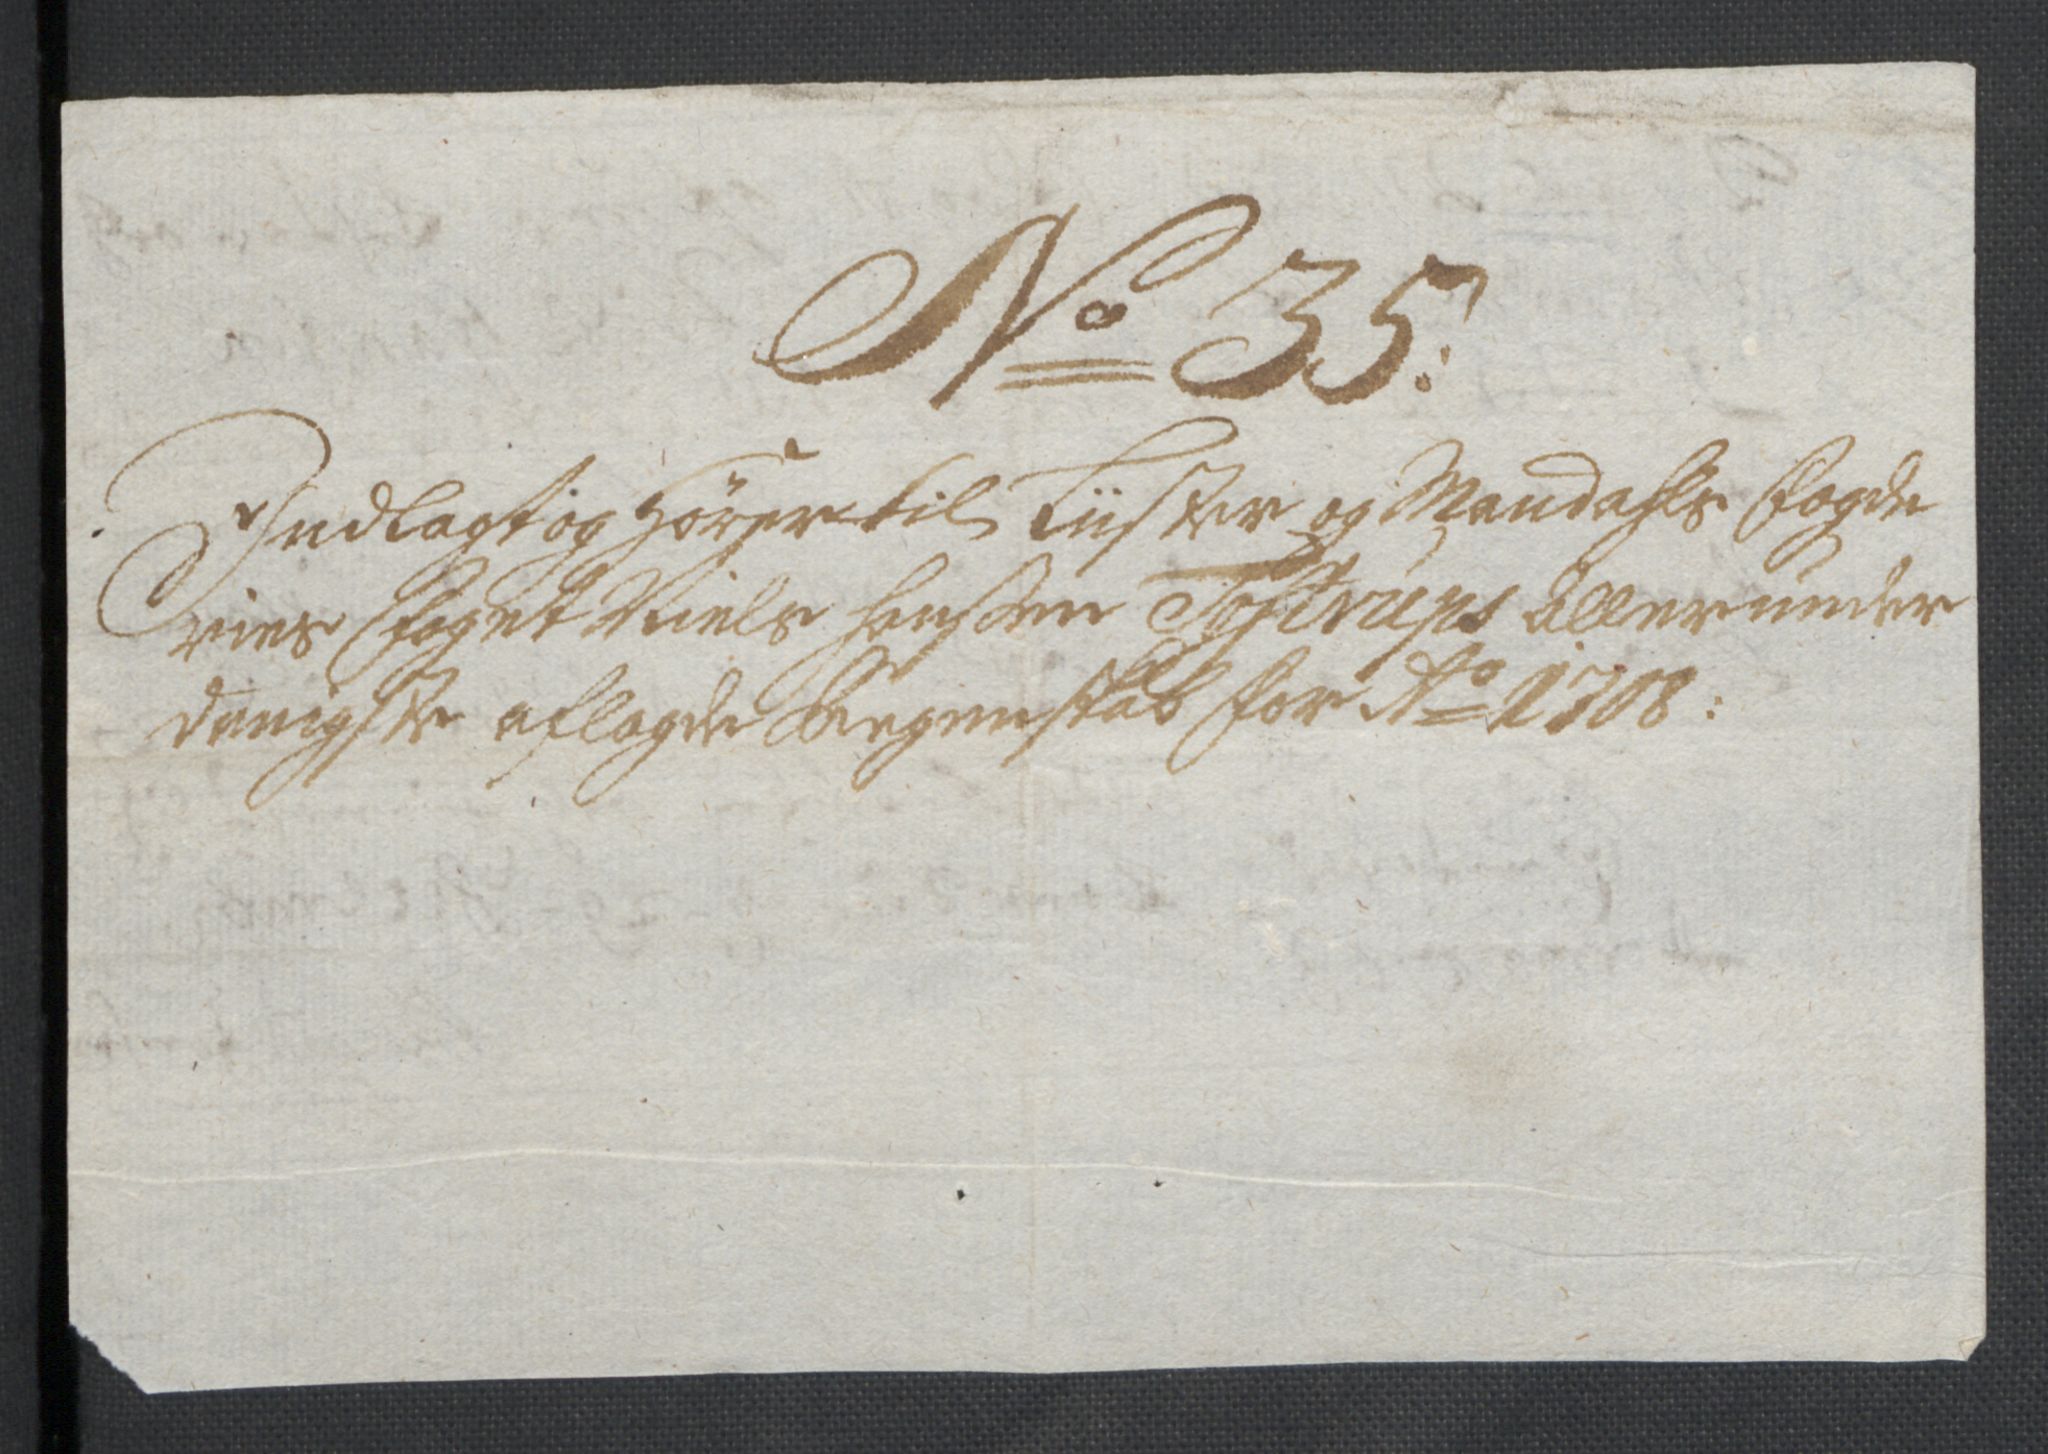 No 35:
Indlagt og hörer til Lüster og Mandahls fogde
ries foget Niels Hansen Toftrups allerunder
danigste aflagde Regenskab for Ao 1708: